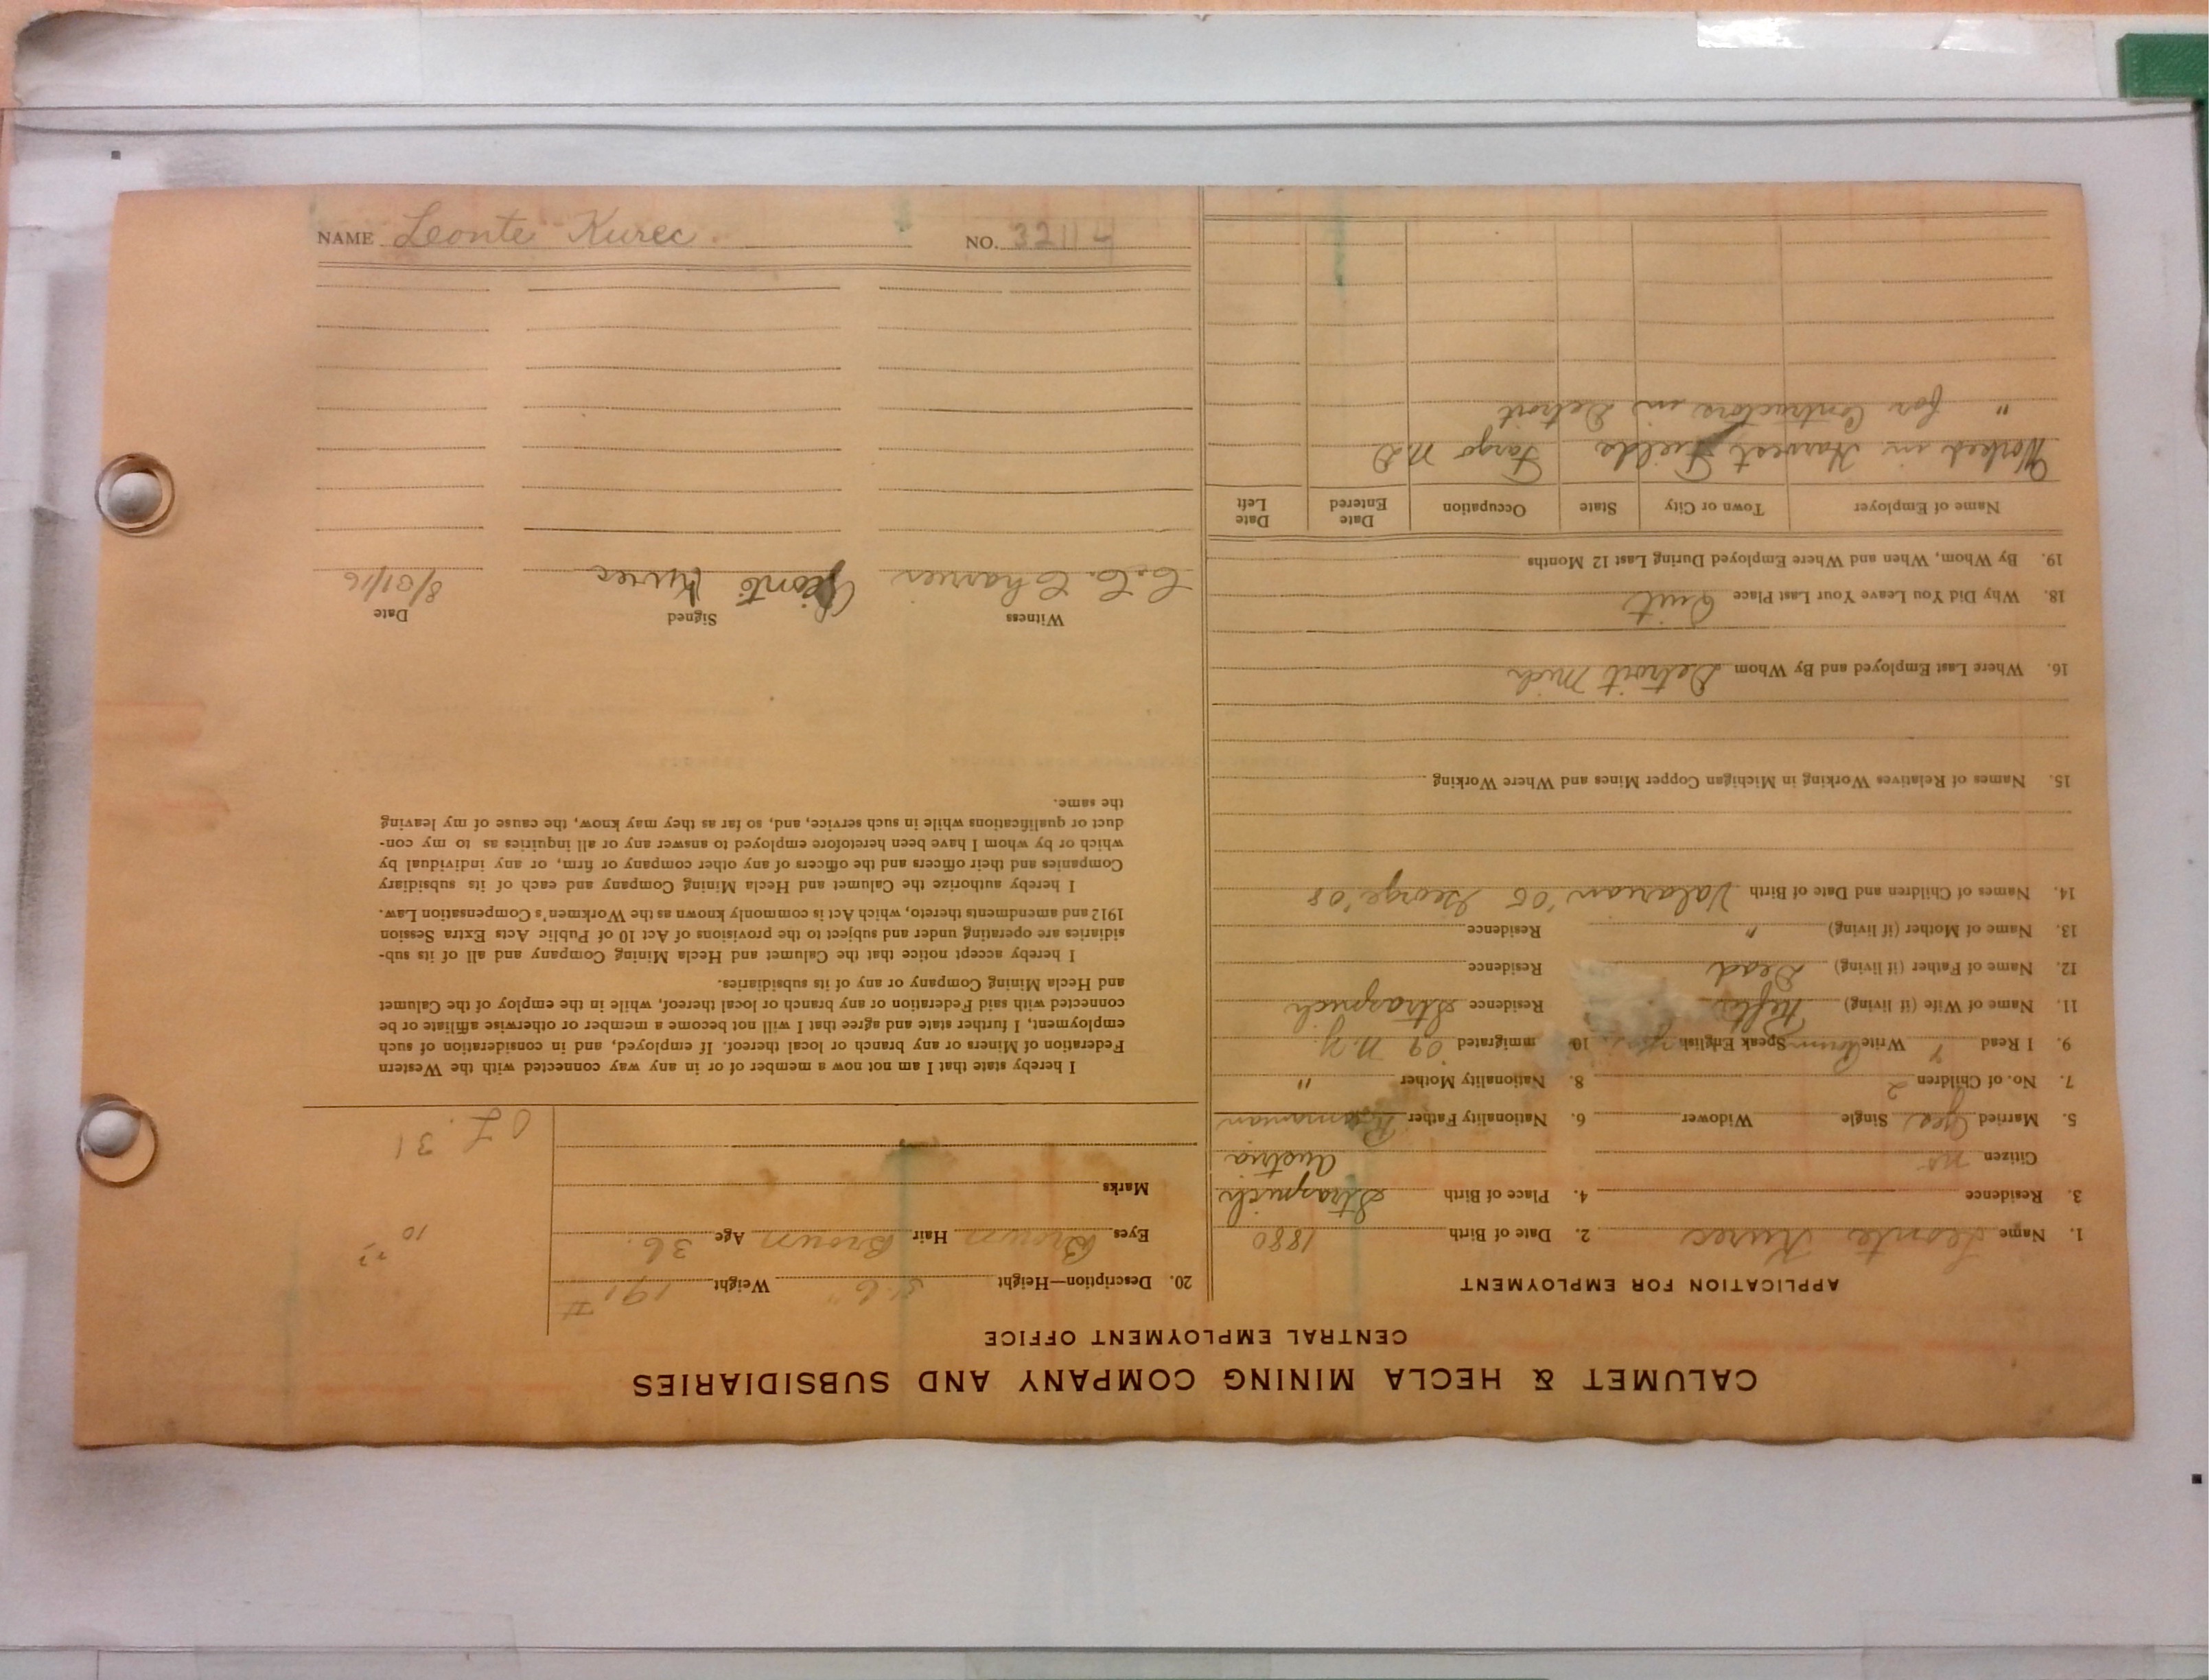 CALUMET & HECLA MINING COMPANY AND SUBSIDIARIES
CENTRAL EMPLOYMENT OFFICE
APPLICATION FOR EMPLOYMENT
1. Name Leonte Kurec 2. Date of Birth 1880
3. Residence 4. Place of Birth Strasnich
Citizen no Austria
5. Married Yes Single Widower 6. Nationality Father Romanian
7. No. of Children 2 8. Nationality Mother "
9. I Read Write Speak English 10 mmigrated '09 N.Y.
11. Name of Wife (if living) Residence Strasnich
12. Name of Father (if living) Dead Residence
13. Name of Mother (if living) " Residence
14. Names of Children and Date of Birth Valarian '05 George '08
15. Names of Relatives Working in Michigan Copper Mines and Where Working
16. Where Last Employed and By Whom Detroit Mich
18. Why Did You Leave Your Last Place Quit
19. By Whom, When and Where Employed During Last 12 Months
Name of Employer Town or City State Occupation Date Entered Date Left
Worked in Harvest Fields Fargo N.D
" for Contractors in Detroit
20. Description—Height 5' 6" Weight 191 #
Eyes Brown Hair Brown Age 36.
Marks
10
O L. 31
I hereby state that I am not now a member of or in any way connected with the Western
Federation of Miners or any branch or local thereof. If employed, and in consideration of such
employment, I further state and agree that I will not become a member or otherwise affiliate or be
connected with said Federation or any branch or local thereof, while in the employ of the Calumet
and Hecla Mining Company or any of its subsidiaries.
I hereby accept notice that the Calumet and Hecla Mining Company and all of its sub-
sidiaries are operating under and subject to the provisions of Act 10 of Public Acts Extra Session
1912 and amendments thereto, which Act is commonly known as the Workmen's Compensation Law.
I hereby authorize the Calumet and Hecla Mining Company and each of its subsidiary
Companies and their officers and the officers of any other company or firm, or any individual by
which or by whom I have been heretofore employed to answer any or all inquiries as to my con-
duct or qualifications while in such service, and, so far as they may know, the cause of my leaving
the same.
Witness Signed Date
C. C. Charrier Leonte Kurec 8/31/16
NAME Leonte Kurec. NO. 32114